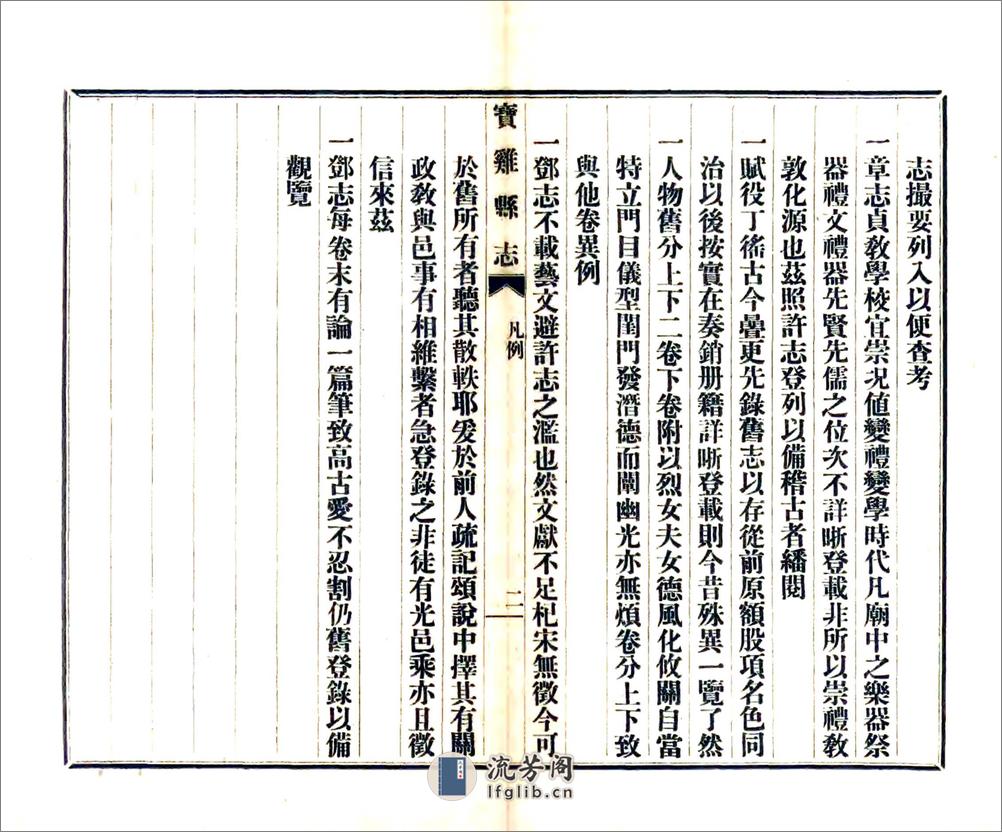 志撮要列入以便查考
一章志貞教學校宜崇况值變禮變學時代凡廟中之樂器祭
器禮文禮器先賢先儒之位次不詳晰登載非所以崇禮教
敦化源也茲照許志登列以備稽古者繙閱
一賦役丁徭古今疊更先錄舊志以存從前原額股項名色同
治以後按實在奏銷册籍詳晰登載則今昔殊異一覽了然
一人物舊分上下二卷下卷附以烈女夫女德風化攸關自當
特立門目儀型閨門發潛德而闡幽光亦無煩卷分上下致
與他卷異例
一鄧志不載藝文避許志之濫也然文獻不足杞宋無徵今可
寶雞縣志
凡例
二
於舊所有者聽其散軼耶爰於前人疏記頌說中擇其有關
政教與邑事有相維繫者急登錄之非徒有光邑乘亦且徵
信來茲
一鄧志每卷末有論一篇筆致高古愛不忍割仍舊登錄以備
觀覽
流芳阁
lfglib.cn